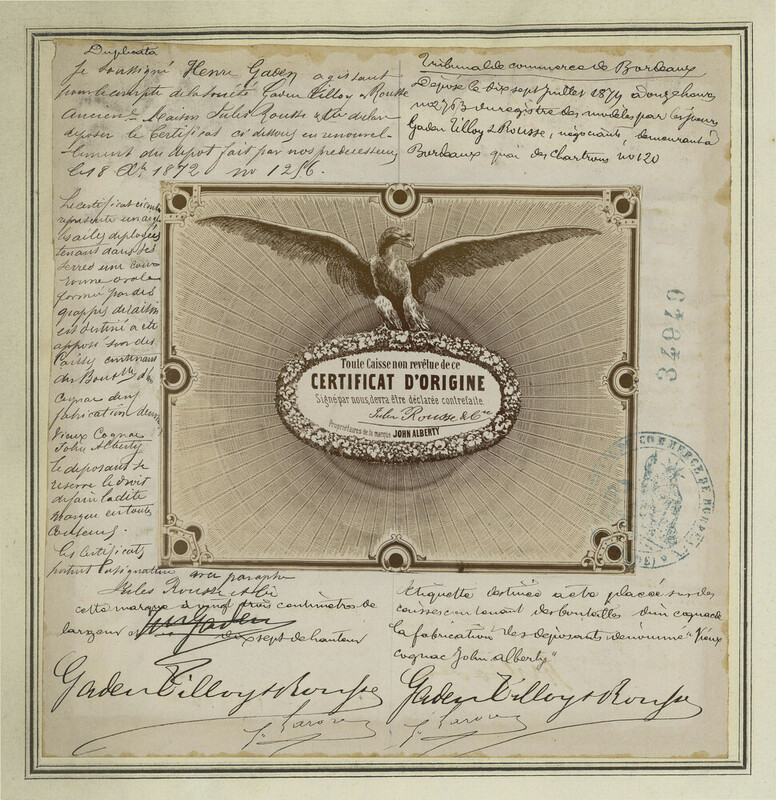 Duplicata
Je soussigné Henri Gaden agissant
pour le compte de la société Gaden Tilloy & Rousse
ancienne Maison Jules Rousse & Cie déclare
déposer le Certificat ci dessous en renouvel-
lement du dépot fait par nos prédécesseurs
le 18 8bre 1872 no 1256.
Tribunal de commerce de Bordeaux
Déposé le dix sept juillet 1874 à onze heures
no 2763 du registre des modèles par les sieurs
Gaden Tilloy & Rousse, négociants, demeurant à
Bordeaux quai des Chartrons no 120
Le certificat ci contre
représente un aigle
les ailes déployées
tenant dans ses
serres une cou-
ronne ovale
formée par des
grappes de raisin
est destiné a été
apposé sur des
Caisses contenant
des Bouteilles de
Cognac de
fabrication
Vieux Cognac
John Alberty
le déposant se
réserve le droit
de faire la dite
marque en toutes
couleurs.
Les certificats
portent la signature avec paraphe
Jules Rousse et Cie
cette marque a vingt trois centimètres de
largeur et dix sept de hauteur
Toute Caisse non revêtue de ce
CERTIFICAT D'ORIGINE
Signé par nous, devra être déclarée contrefaite.
Jules Rousse & Cie
Propriétaires de la marque JOHN ALBERTY
34949
COMMERCE DE BORDEAUX
Etiquette destinée a etre placée sur des
caisses contenant des bouteilles d'un cognac de
la fabrication des déposants dénommé "Vieux
cognac John Alberty"
Gaden Tilloy & Rousse
Gaden Tilloy & Rousse